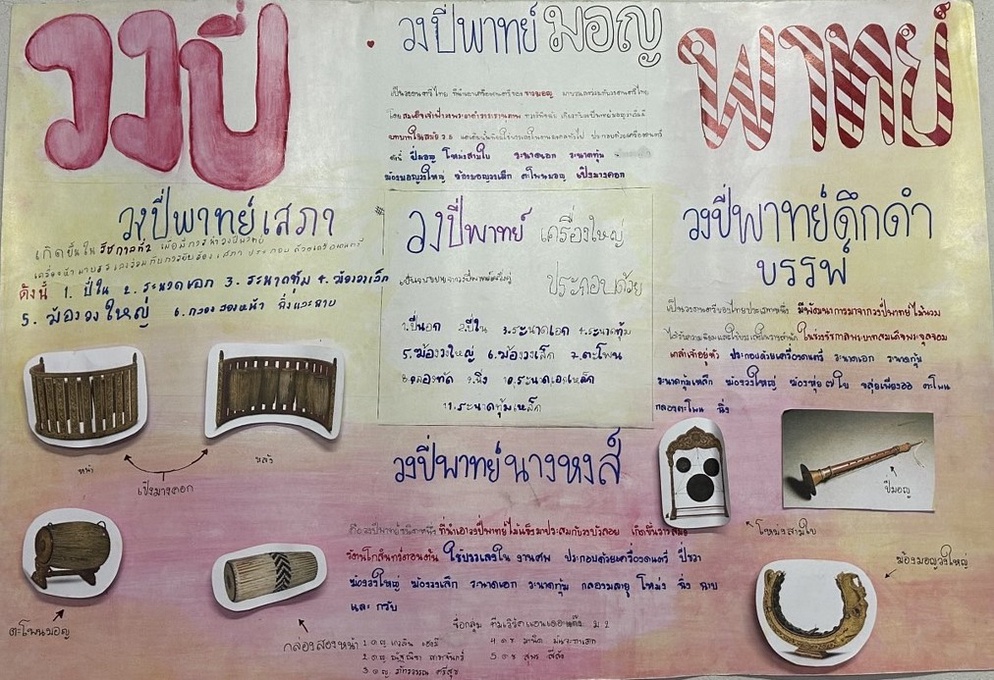 วงปี่
พาทย์
วงปี่พาทย์มอญ
เป็นวงดนตรีไทย ที่นำเอาเครื่องดนตรีของชาวมอญ มาบรรเลงรวมกับวงดนตรีไทย
ดังนี้ ปี่มอญ โหม่งสามใบ ระนาดเอก ระนาดทุ้ม
ฆ้องมอญวงใหญ่ ฆ้องมอญวงเล็ก ตะโพนมอญ เปิงมางคอก
วงปี่พาทย์เสภา
เกิดขึ้นใน รัชกาลที่2
ดังนี้ 1. ปี่ใน 2. ระนาดเอก 3. ระนาดทุ้ม 4. ฆ้องวงเล็ก
5. ฆ้องวงใหญ่ 6. กลองสองหน้า ฉิ่งและฉาบ
วงปี่พาทย์ เครื่องใหญ่
ประกอบด้วย
1.ปี่นอก 2.ปี่ใน 3.ระนาดเอก 4.ระนาดทุ้ม
5.ฆ้องวงใหญ่ 6.ฆ้องวงเล็ก 7.ตะโพน
8.กลองทัด 9.ฉิ่ง 10.ระนาดเอกเหล็ก
11.ระนาดทุ้มเหล็ก
วงปี่พาทย์ดึกดำ
บรรพ์
เป็นวงดนตรีของไทยประเภทหนึ่ง มีพัฒนาการมาจากวงปี่พาทย์ไม้นวม
ในช่วงรัชกาลพระบาทสมเด็จพระจุลจอม
เกล้าเจ้าอยู่หัว ประกอบด้วยเครื่องดนตรี ระนาดเอก ระนาดทุ้ม
ระนาดทุ้มเหล็ก ฆ้องวงใหญ่ ฆ้องหุ่ย ๗ ใบ ขลุ่ยเพียงออ ตะโพน
กลองตะโพน ฉิ่ง
หน้า
หลัง
เปิงมางคอก
วงปี่พาทย์นางหงส์
คือวงปี่พาทย์ชนิดหนึ่ง ที่นำเอาวงปี่พาทย์ไม้แข็งมาประสมกับวงบัวลอย เกิดขึ้นราวสมัย
รัตนโกสินทร์ตอนต้น ใช้บรรเลงใน งานศพ ประกอบด้วยเครื่องดนตรี ปี่ชวา
ฆ้องวงใหญ่ ฆ้องวงเล็ก ระนาดเอก ระนาดทุ้ม กลองมลายู โหม่ง ฉิ่ง ฉาบ
และ กรับ
ปี่มอญ
โหม่งสามใบ
ฆ้องมอญวงใหญ่
ตะโพนมอญ
กลองสองหน้า